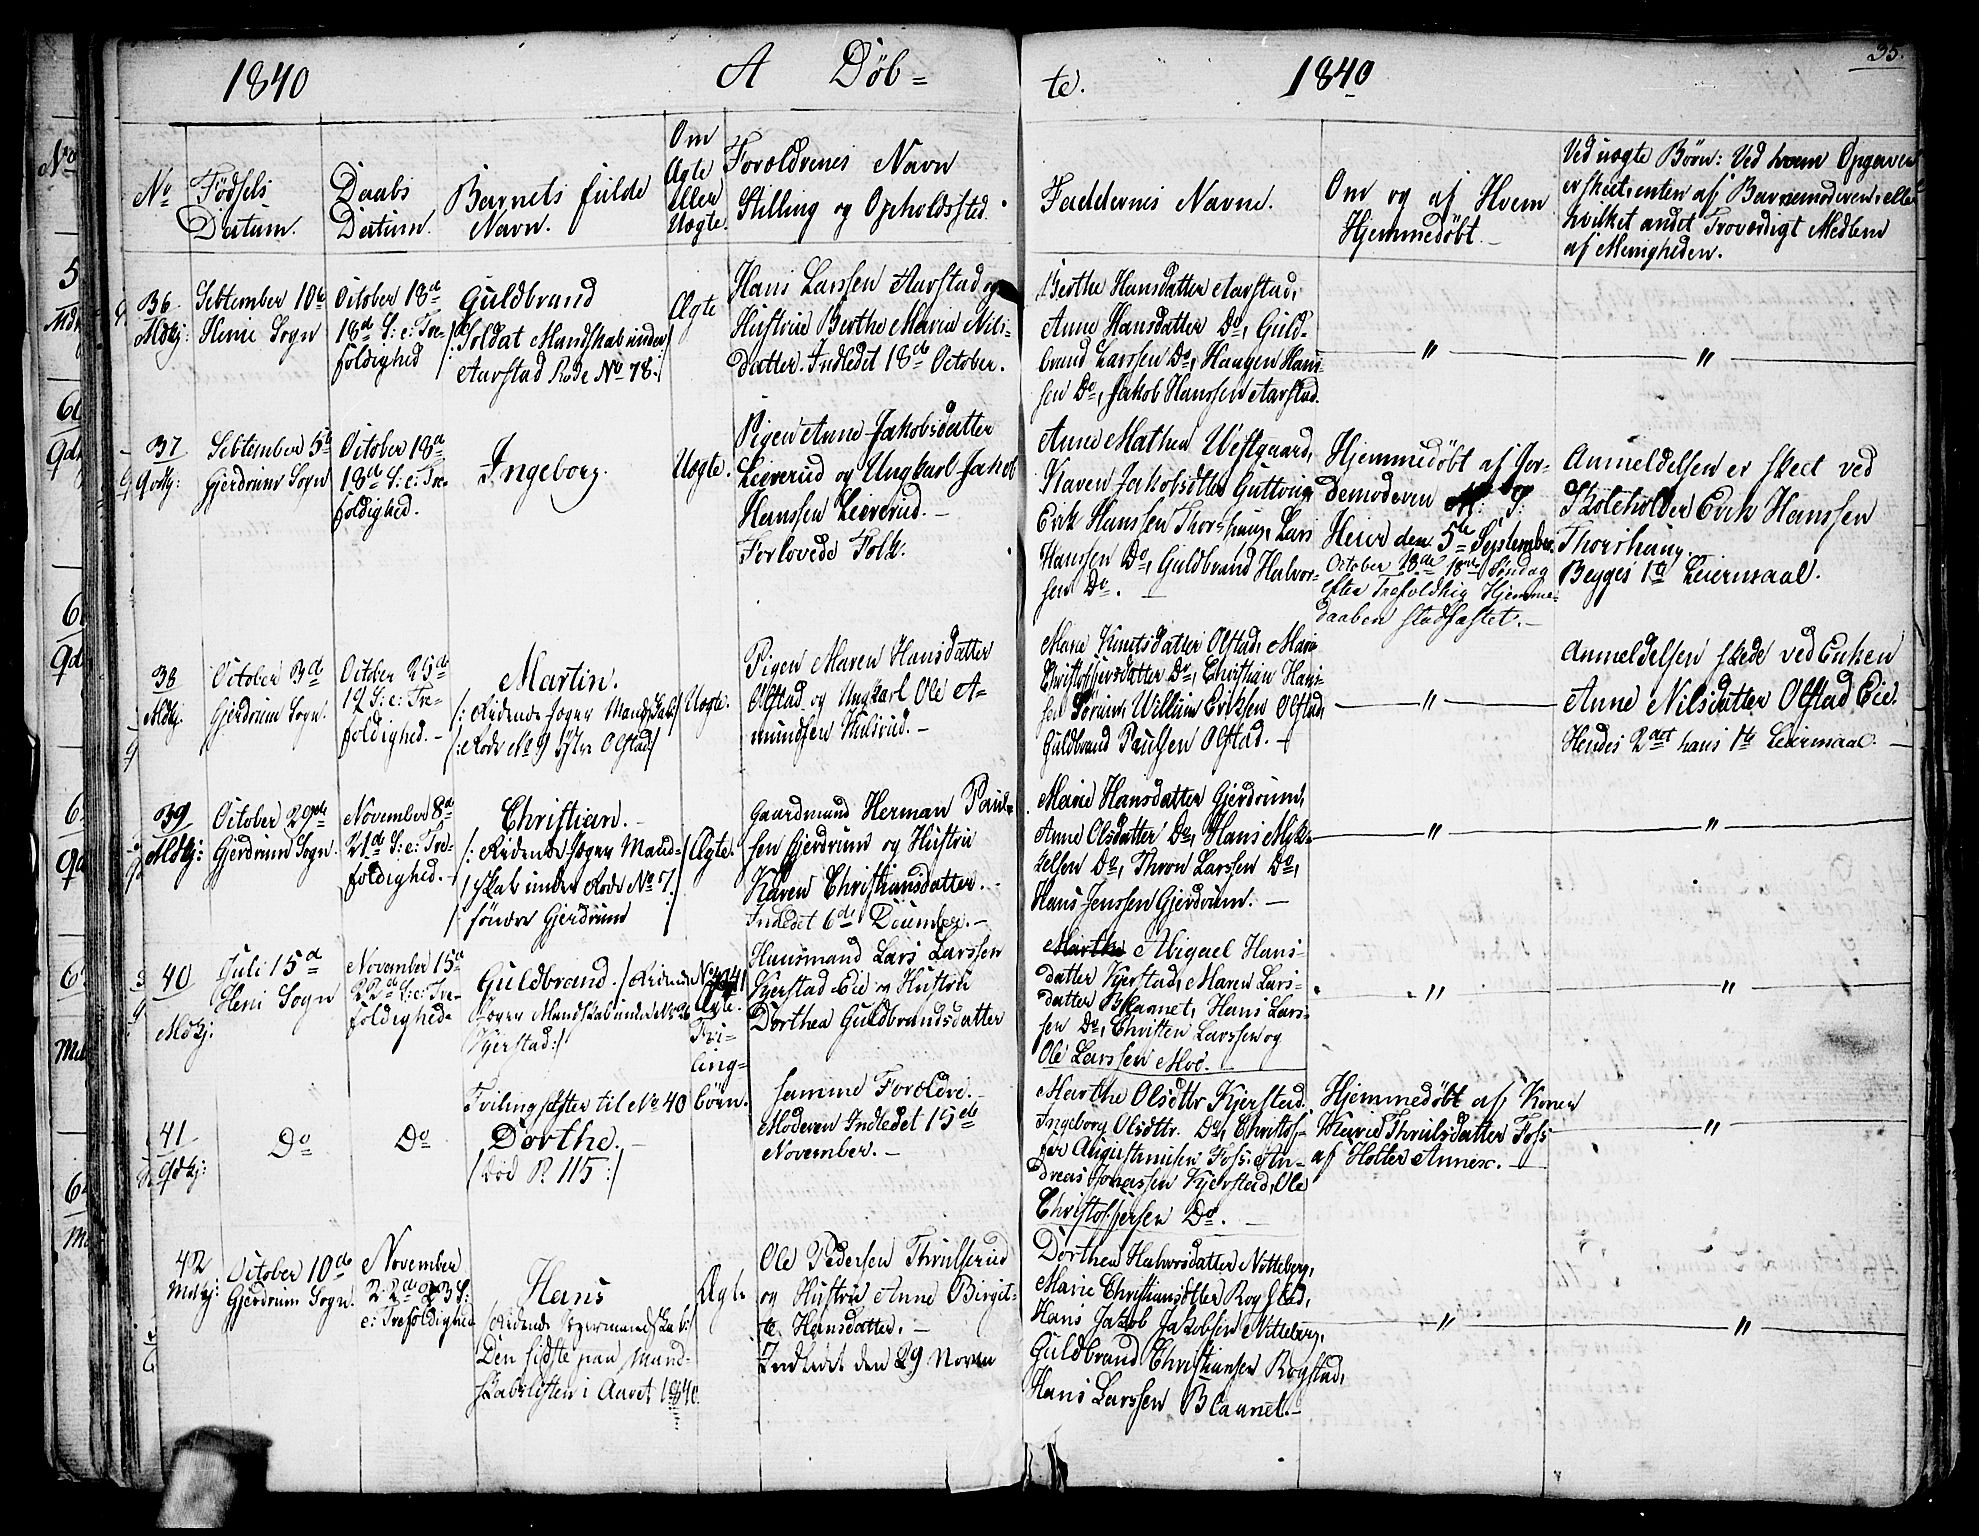 35.
1840
A Döb=
te.
1840
No
Födsels
Datum.
Daabs
Datum.
Barnets fulde
Navn.
Om
Ægte
eller
Uægte.
Forældrenes Navn
Stilling og Opholdssted.
Faddernes Navne.
Om og af Hvem
Hjemmedöbt.
Ved uægte Börn: Ved hvem Opgaven
er skeet, enten af Barnemoderen, eller
hvilket andet Troværdigt Medlem
af Menigheden.
36
Mdkj:
September 10de
Heni Sogn
October 18de
18de S: e: Tre-
foldighed
Guldbrand
Soldat Mandskab under
Aarstad Rode No 78.
Ægte
Hans Larssen Aarstad og
Hustrue Berthe Maren Nils-
datter. Indledet 18de October.
Berthe Hansdatter Aarstad,
Anne Hansdatter Do, Guld-
brand Larssen Do, Haagen Hans-
sen Do, Jakob Hanssen Aarstad.
"
"
37
Qvkj:
September 5te
Gjerdrum Sogn
October 18de
18de S: e: Tre-
foldighed.
Ingeborg.
Uægte.
Pigen Anne Jakobsdatter
Leierud og Ungkarl Jakob
Hanssen Leierud.
Forlovede Folk.
Anne Mathea Westgaard,
Karen Jakobsdtter Guttorm
Erik Hanssen Thorshaug, Lars
Hanssen Do, Guldbrand Halvor-
sen Do.
Hjemmedöbt af Jor-
demoderen
Heier den 5te September.
October 18de 18de Söndag
efter Trefoldhig Hjemme-
daaben stadfæstet.
Anmeldelsen er skeet ved
Skoleholder Erik Hanssen
Thorshaug.
Begges 1te Leiermaal.
38
Mdkj.
October 3de
Gjerdrum Sogn.
October 25de
19 S: e: Tre-
foldighed.
Martin.
/: Ridende Jæger Mandskab:/
/: Rode No 9 Olstad/
Uægte.
Pigen Maren Hansdatter
Olstad og Ungkarl Ole A-
mundsen Hulerud.
Marie Knutsdatter Olstad, Maria
Christophersdatter Do, Christian Hans-
sen Sörum, Willum Eriksen Olstad,
Guldbrand Paulsen Olstad.
"
Anmeldelsen skede ved Enken
Anne Nilsdatter Olstad Eie.
Hendes 2det hans 1te Leiermaal.
39
Mdkj:
October 29de
Gjerdrum Sogn.
November 8de
21de S: e: Tre-
foldighed.
Christian.
/: Ridende Jæger Mand-
skab under Rode No 7.
söndre Gjerdrum
Ægte.
Gaardmand Herman Paul-
sen Gjerdrum og Hustru
Karen Christiansdatter.
Indledet 6de December.
Marie Hansdatter Gjerdrum,
Anne Olsdatter Do, Hans Myk-
kelsen Do, Thron Larssen Do,
Hans Jenssen Gjerdrum.
"
"
40
Mdkj:
Juli 15de
Heni Sogn
November 15de
22de S: e: Tre-
foldighed
Guldbrand. /: Ridende
Jæger Mandskab under No 26
Kjerstad:/
No 40 41
Ægte.
Tvi-
ling-
börn.
Huusmand Lars Larssen
Kjerstad Eie og Hustru
Dorthea Guldbrandsdatter
Abigael Hans-
datter Kjerstad, Maren Lars-
datter Blaanet, Hans Lars-
sen Do, Christen Larssen og
Ole Larssen Moe.
"
"
41
Qdkj:
Do
Do
Tvilingsöster til No 40
Dorthe.
/död P. 115:/
samme Forældre.
Moderen Indledet 15de
November.
Marthe Olsdttr Kjerstad,
Ingeborg Olsdttr. Do, Christof-
fer Augustinusen Foss, An-
dreas Jonassen Kjerstad, Ole
Christophersen Do.
Hjemmedöbt af Konen
Marie Thrulsdatter Foss
af Holter Annex.
"
42
Mdkj:
October 10de
Gjerdrum Sogn.
November
22de 23 S:
e: Trefoldighed
Hans
/Ridende Jægermandskab:/
Den sidste paa Mand-
skabslisten i Aaret 1840.
Ægte
Ole Pedersen Thrulserud
og Hustru Anne Birgit-
te Hansdatter.
Indledet den 29 Novem
Dorthea Halvorsdatter Nitteberg,
Marie Christiansdtter Rogstad,
Hans Jakob Jakobsen Nitteberg,
Guldbrand Christiansen Rogstad,
Hans Larssen Blaanet.
"
"